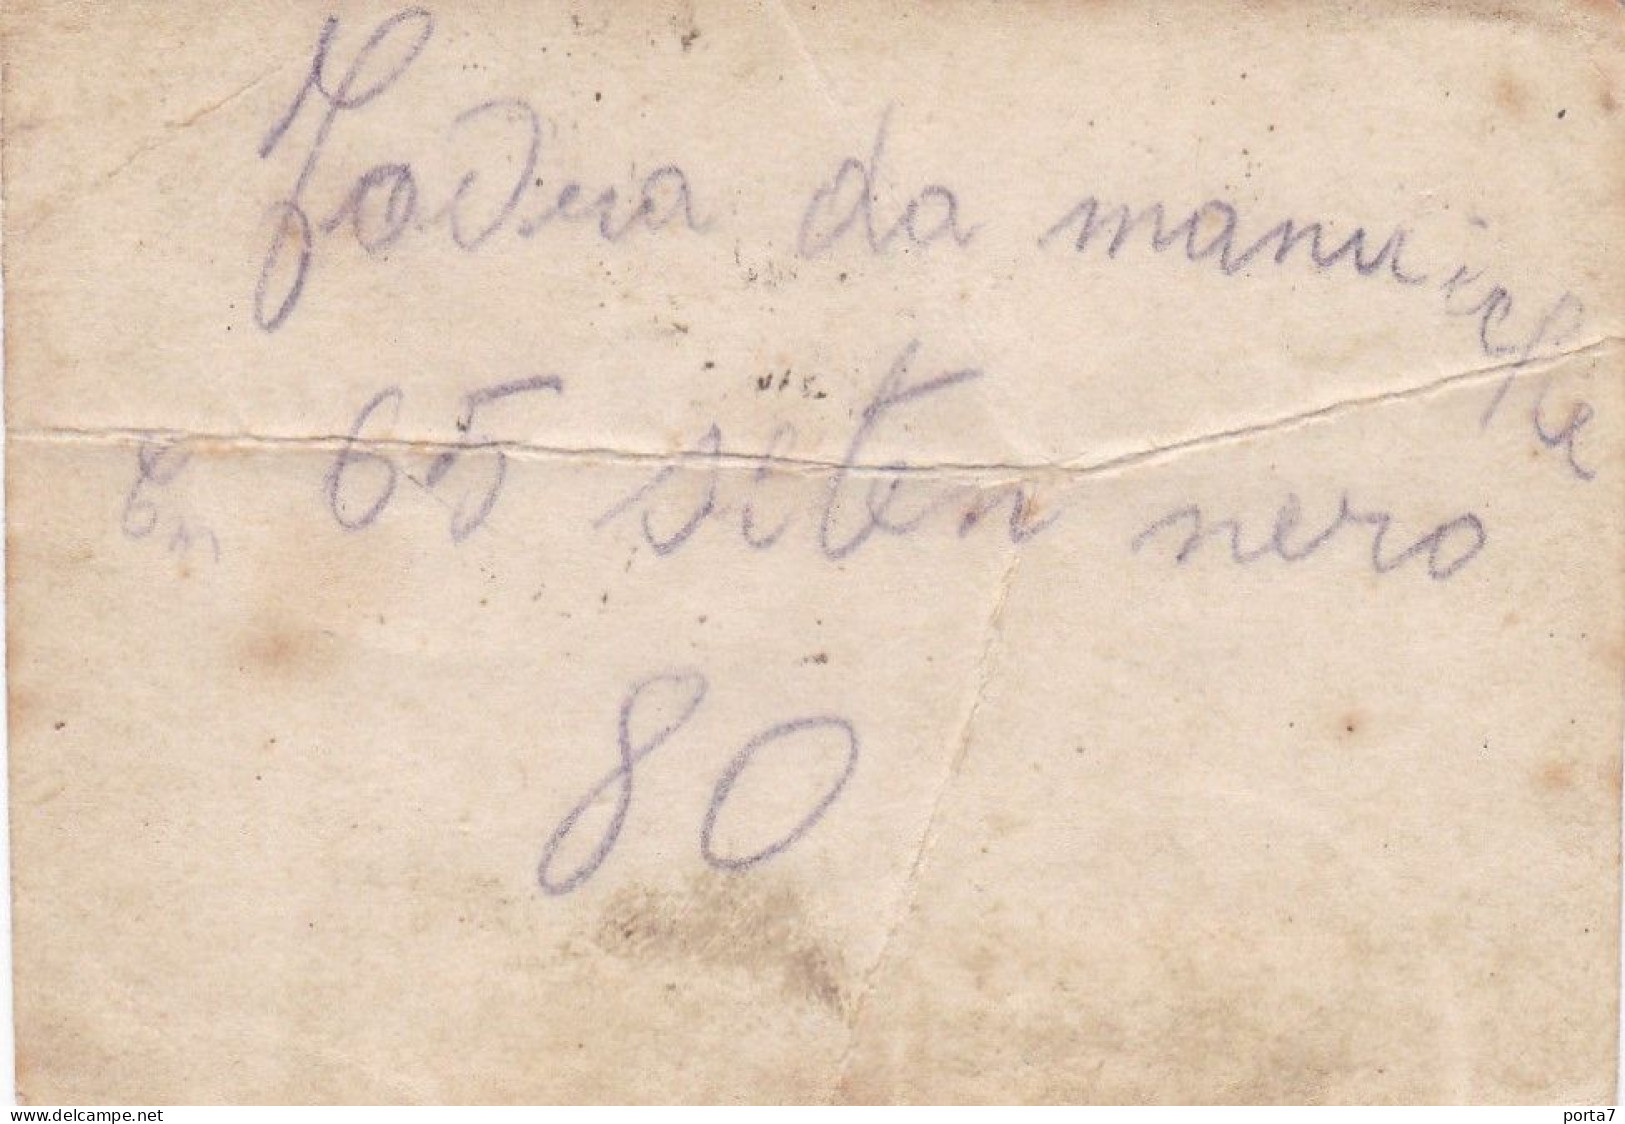 Fodera da maniche
Cm 65 siten nero
80
www.delcampe.net
porta7